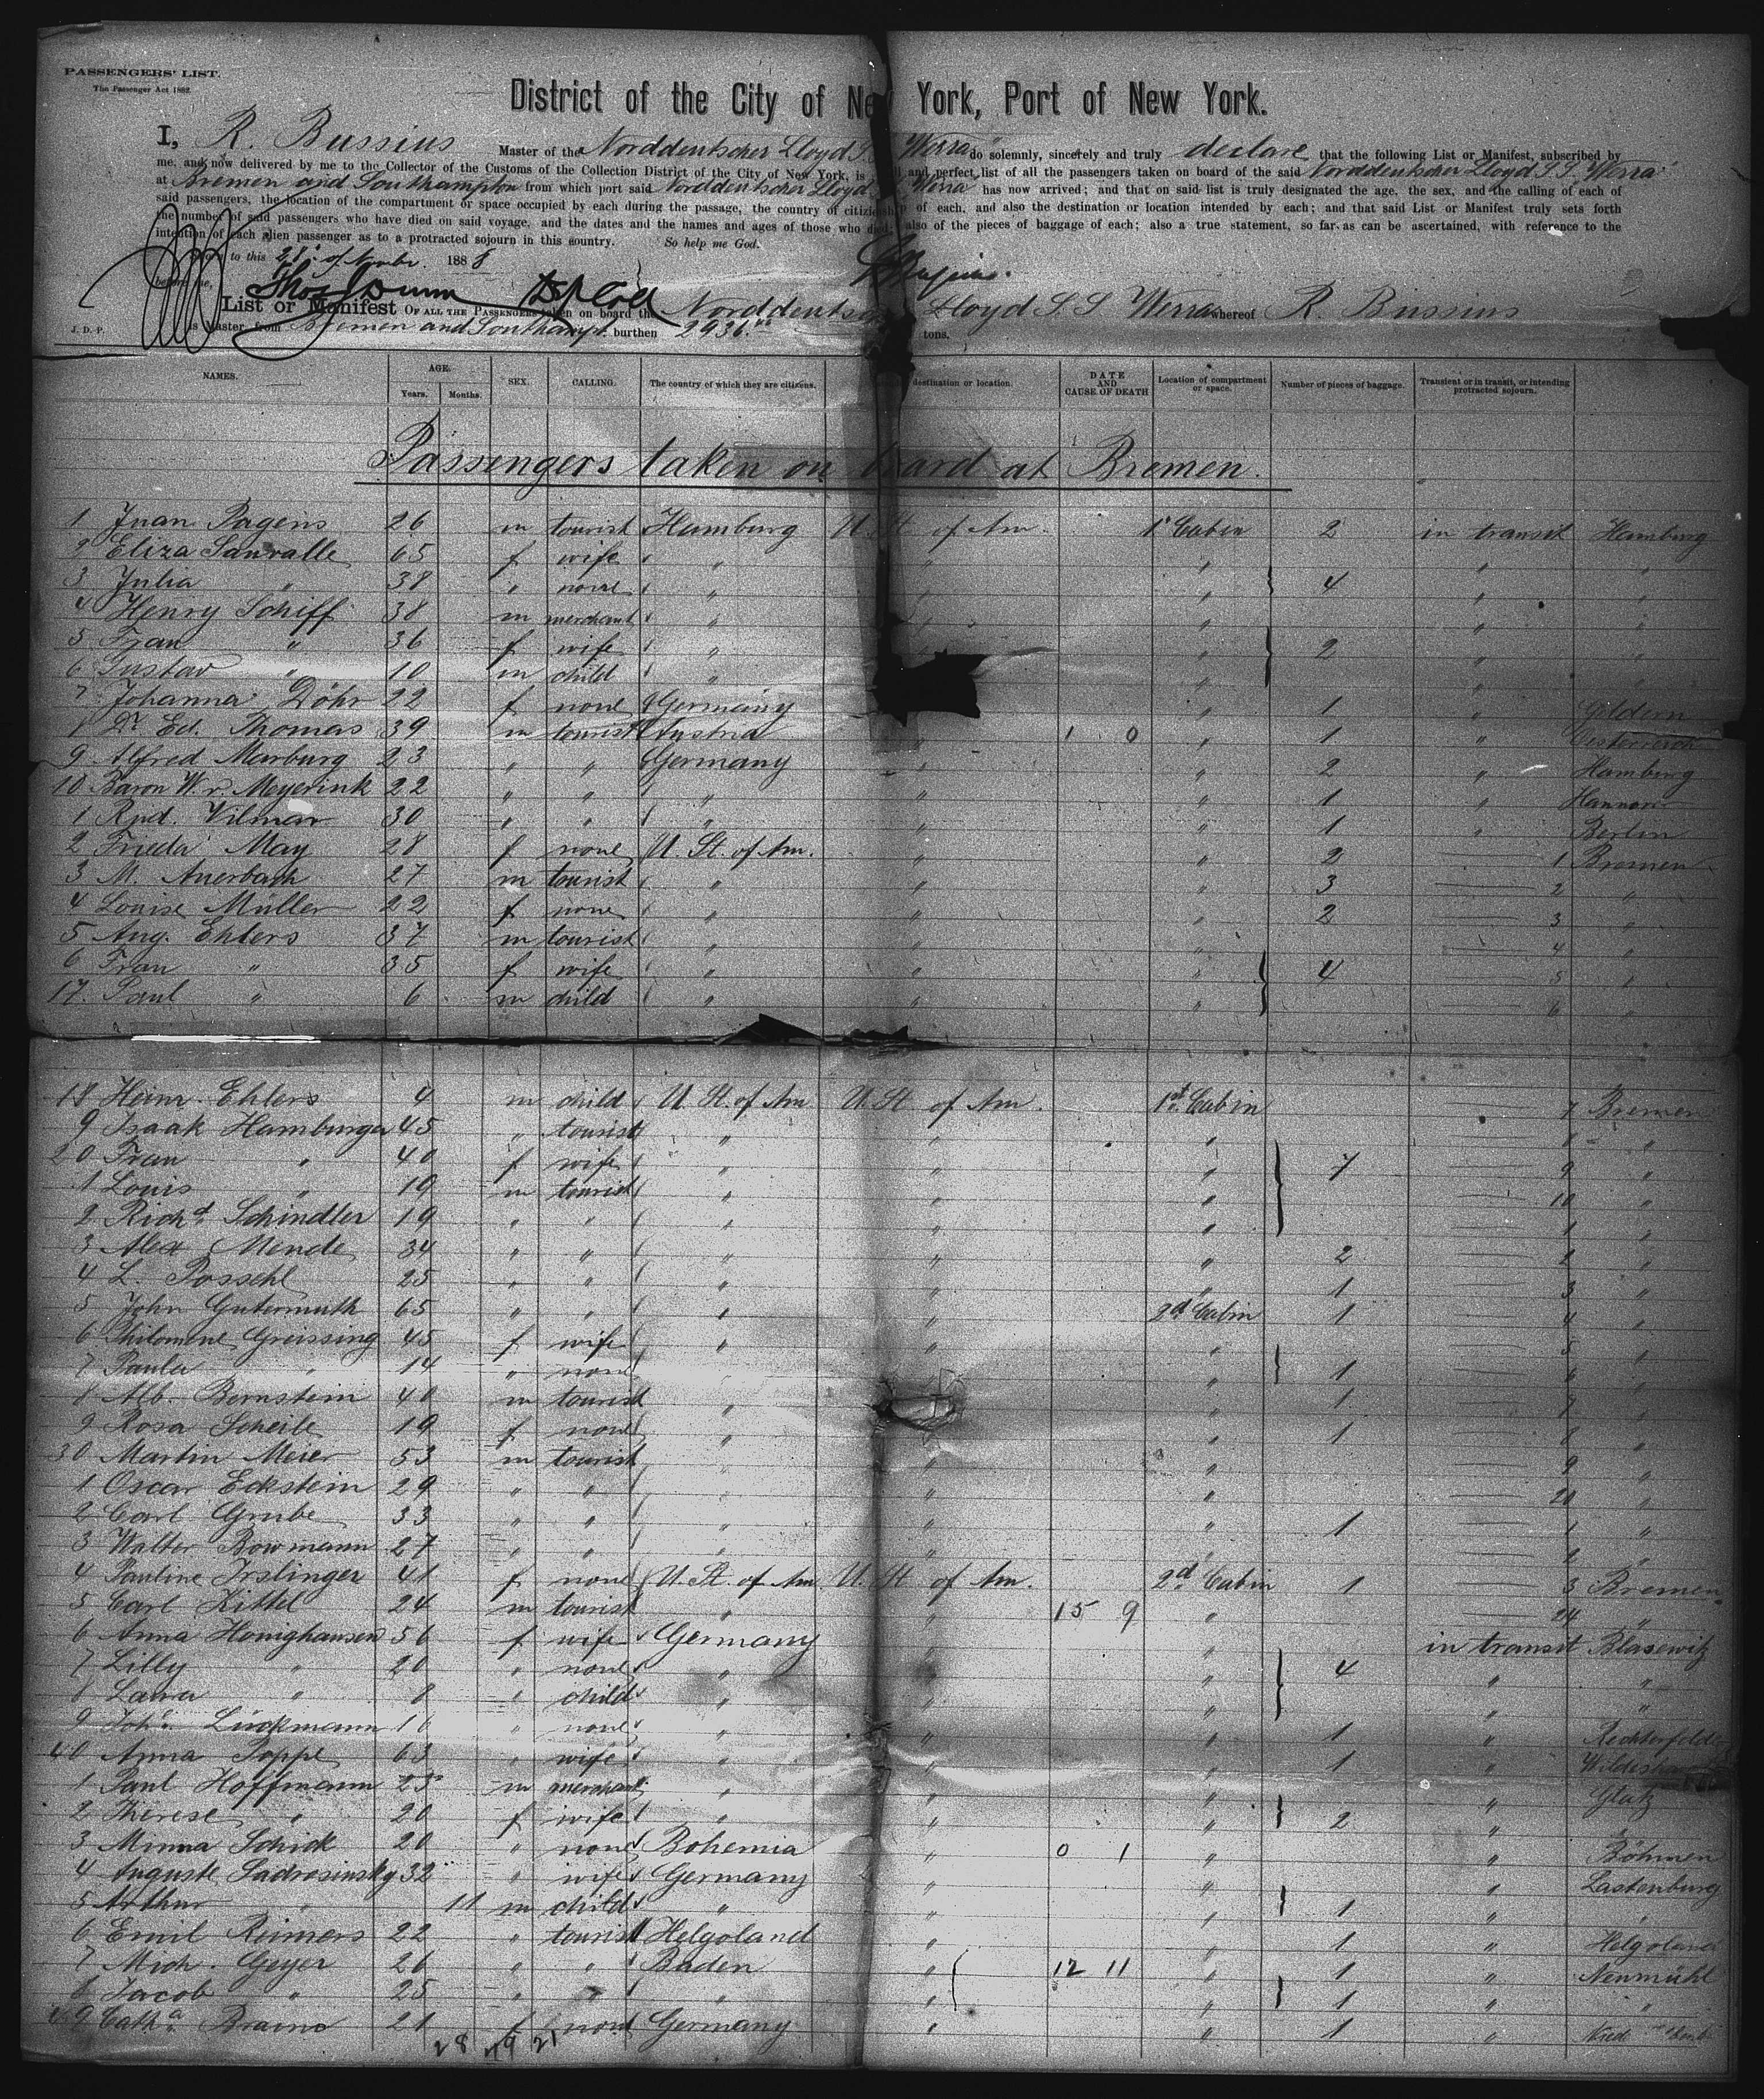 PASSENGERS' LIST.
The Passenger Act 1882.
District of the City of New York, Port of New York.
I, R. Bussius Master of the Norddeutscher Lloyd S.S. Werra do solemnly, sincerely and truly declare that the following List or Manifest, subscribed by
me, and now delivered by me to the Collector of the Customs of the Collection District of the City of New York, is a full and perfect list of all the passengers taken on board of the said Norddeutscher Lloyd S.S. Werra
at Bremen and Southampton from which port said Norddeutscher Lloyd Werra has now arrived; and that on said list is truly designated the age, the sex, and the calling of each of
said passengers, the location of the compartment or space occupied by each during the passage, the country of citizenship of each, and also the destination or location intended by each; and that said List or Manifest truly sets forth
the number of said passengers who have died on said voyage, and the dates and the names and ages of those who died; also of the pieces of baggage of each; also a true statement, so far as can be ascertained, with reference to the
intention of each alien passenger as to a protracted sojourn in this country. So help me God.
to this 21st of Novbr. 1888
before me,
List or Manifest OF ALL THE PASSENGERS taken on board the Norddeutscher Lloyd S.S Werra whereof R. Bussius
J. D. P. is Master, from Bremen and Southampt. burthen 2936 tons.
NAMES. AGE. Years. Months. SEX. CALLING. The country of which they are citizens. destination or location. DATE AND CAUSE OF DEATH Location of compartment or space. Number of pieces of baggage. Transient or in transit, or intending protracted sojourn.
Passengers taken on board at Bremen.
1 Juan Pagens 26 m tourist Hamburg U. St. of Am. 1st Cabin 2 in transit Hamburg
2 Eliza Sauvalle 65 f wife " " " " "
3 Julia " 38 " none " " " 4 " "
4 Henry Schiff 38 m merchant " " " " "
5 Frau " 36 f wife " " 2 " "
6 Gustav " 10 m child " " " "
7 Johanna Döhr 22 f none Germany " 1 " Geldern
8 Dr. Ed. Thomas 39 m tourist Austria 1 0 " 1 " Oesterreich
9 Alfred Marburg 23 " " Germany " " 2 " Hamburg
10 Baron W. v. Meyerink 22 " " " " " 1 " Hannover
1 Rud. Vilmar 30 " " " " " 1 " Berlin
2 Frieda May 28 f none U. St. of Am. " " 2 1 Bremen
3 M. Auerbach 27 m tourist " " " 3 2 "
4 Louise Müller 22 f none " " " 2 3 "
5 Aug. Ehlers 37 m tourist " " " 4 "
6 Frau " 35 f wife " " " 4 5 "
17. Paul " 6 m child " " " 6 "
18 Heinr. Ehlers 4 m child U. St. of Am U. St. of Am. 1st Cabin 7 Bremen
9 Isaak Hamburger 45 " tourist " " " 8 "
20 Frau " 40 f wife " " " 7 9 "
1 Louis " 19 m tourist " " " 10 "
2 Richd. Schindler 19 " " " " " 1 "
3 Alex Mende 34 " " " " " 2 2 "
4 L. Possehl 25 " " " " " 1 3 "
5 John Gutermuth 65 " " " " 2d Cabin 1 4 "
6 Philomene Greissing 45 f wife " " " 5 "
7 Paula " 14 " none " " 1 6 "
8 Alb. Bernstein 40 m tourist " " " 1 7 "
9 Rosa Scheile 19 f none " " " 1 8 "
30 Martin Meier 53 m tourist " " " 9 "
1 Oscar Eckstein 29 " " " " " 20 "
2 Carl Grube 33 " " " " " 1 1 "
3 Walter Bowmann 27 " " " " " 2 "
4 Pauline Irslinger 41 f none U. St. of Am. U. St. of Am. 2d Cabin 1 3 Bremen
5 Carl Kittel 24 m tourist " " 15 9 " 24 "
6 Anna Honighausen 56 f wife Germany " " in transit Blasewitz
7 Lilly " 20 " none " " " 4 " "
8 Laura " 8 " child " " " "
9 Joh. Lückmann 16 " none " " " 1 "
40 Anna Poppe 63 " wife " " " 1 "
1 Paul Hoffmann 25 m merchant " " " " Glatz
2 Therese " 20 f wife " " " 2 " "
3 Minna Schick 20 " none Bohemia " 0 1 " " Böhmen
4 Auguste Sadrosinsky 32 " wife Germany " " Lastenburg
5 Arthur " 11 m child " " " 1 " "
6 Emil Reimers 22 " tourist Helgoland " " 1 " Helgoland
7 Mich. Geyer 26 " " Baden " 12 11 " 1 " Neumühl
8 Jacob " 25 " " " " " 1 " "
49 Catha. 21 f none Germany " " 1 "
28 49 21